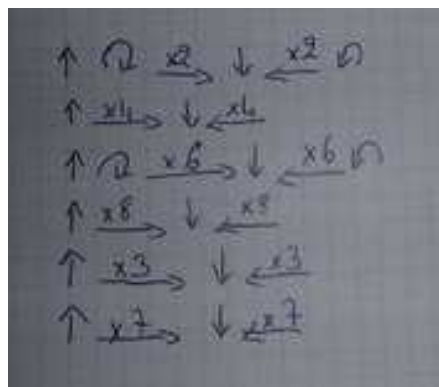 ↑ ↷ x2→ ↓ ←x2 ↶
↑ x4→ ↓ ←x4
↑ ↷ x6→ ↓ ←x6 ↶
↑ x8→ ↓ ←x8
↑ x3→ ↓ ←x3
↑ x7→ ↓ ←x7